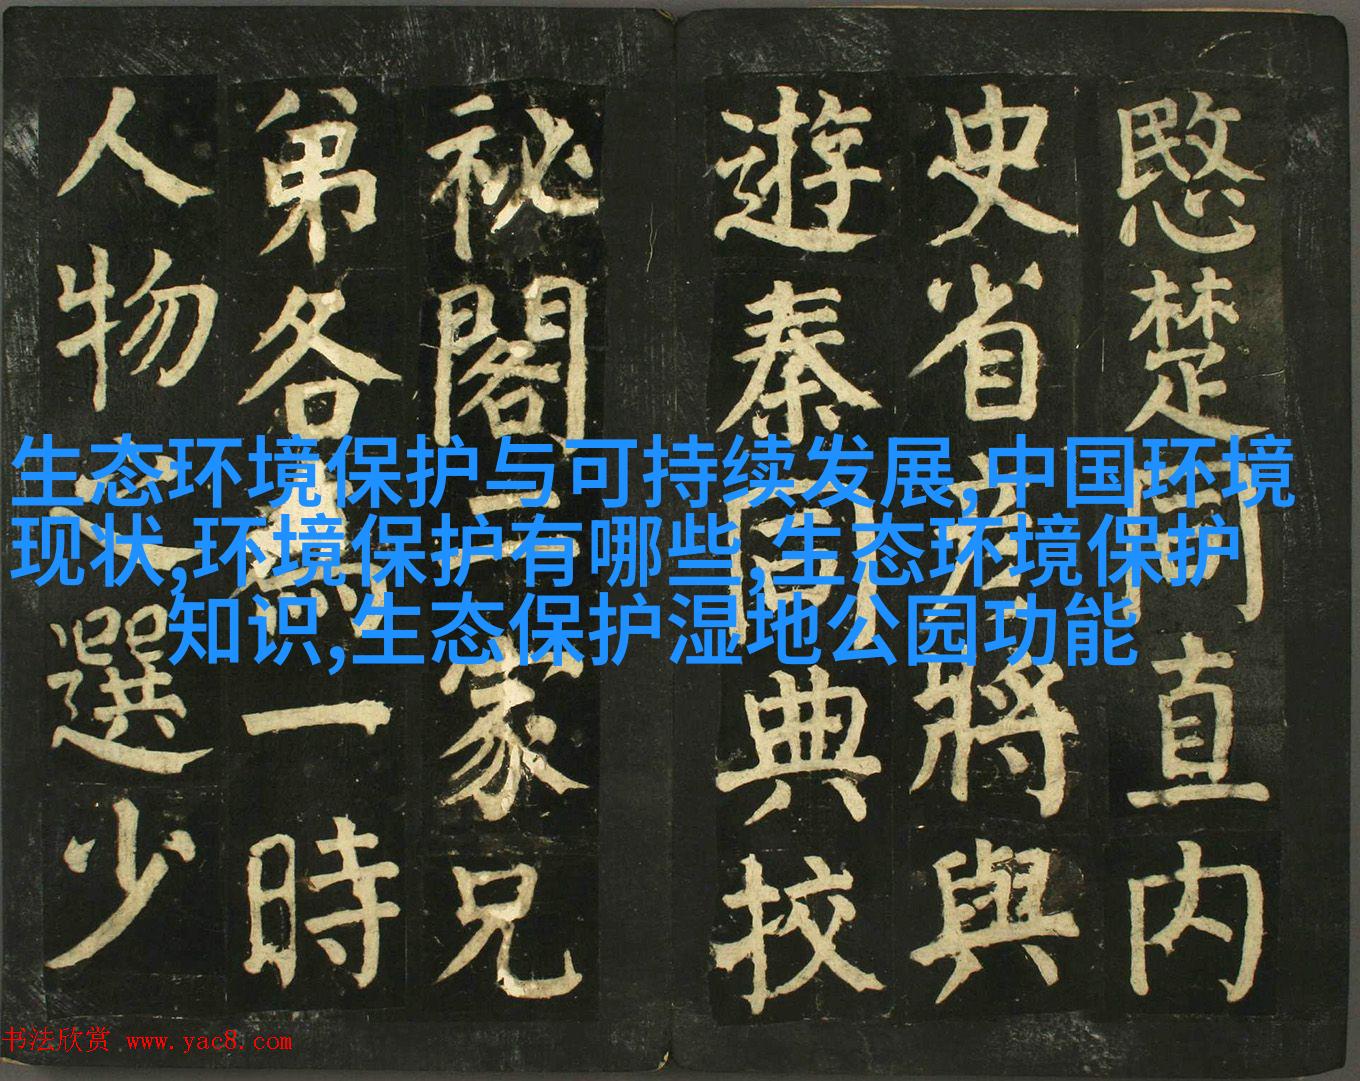 愍楚同直内
史省彦將與
遊秦同典校
祕閣二家兄
弟各為一時
人物之選少
生态环境保护与可持续发展,中国环境
现状,环境保护有哪些,生态环境保护
知识,生态保护湿地公园功能
书法欣赏 www.yac8.com